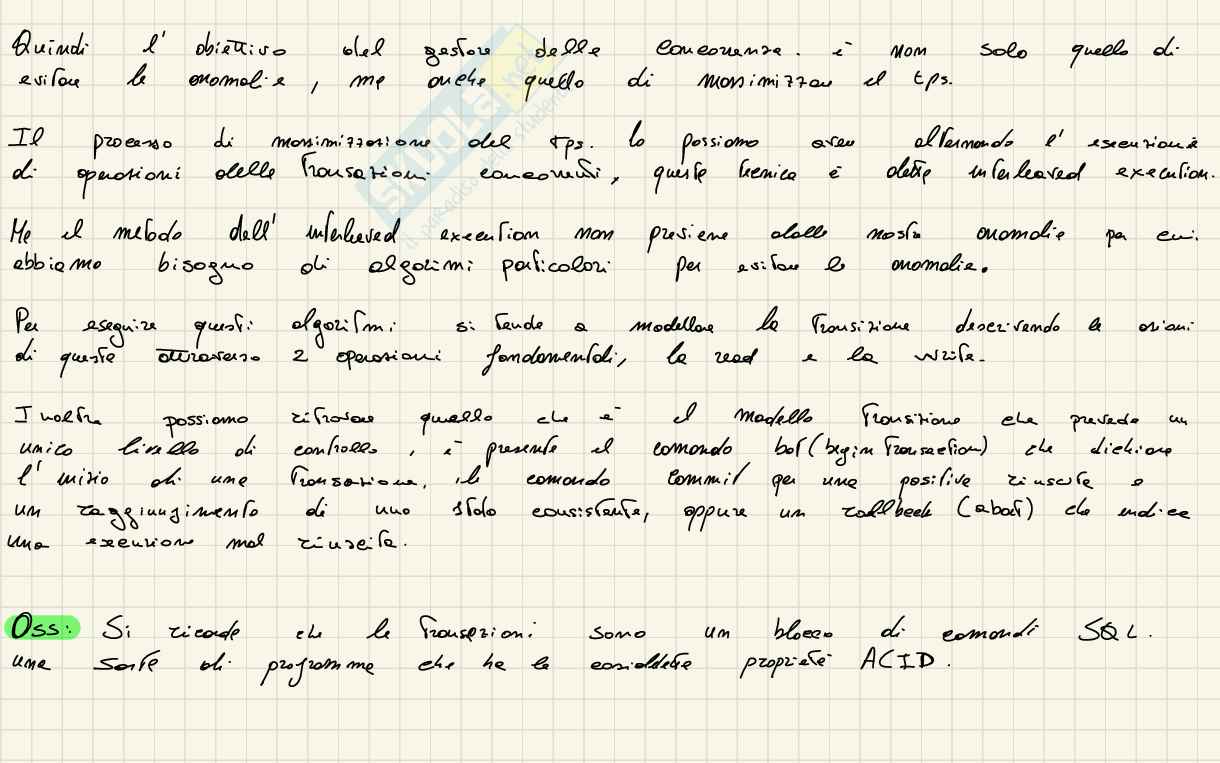 Quindi l' obiettivo del gestore delle concorrenza. è non solo quello di
evitare le anomalie, ma anche quello di massimizzare il tps.
Il processo di massimizzazione del tps. lo possiamo avere alternando l' esecuzione
di operazioni delle transazioni concorrenti, queste tecnica è detta interleaved execution.
Ma il metodo dell' interleaved execution non previene dalle nostre anomalie per cui
abbiamo bisogno di algoritmi particolari per evitare le anomalie.
Per eseguire questi algoritmi si tende a modellare la transizione descrivendo le azioni
di queste attraverso 2 operazioni fondamentali, la read e la write.
Inoltre possiamo ritrovare quello che è il modello transizione che prevede un
unico livello di controllo, è presente il comando bot (begin transaction) che dichiara
l' inizio di una transazione, il comando commit per una positiva riuscita e
un raggiungimento di uno stato consistente, oppure un rollback (abort) che indica
una execuzione mal riuscita.
Oss: Si ricorda che le transazioni sono un blocco di comandi SQL.
una sorta di programma che ha le cosiddette proprietà ACID.
SKUOLA.net
il paradiso dello studente